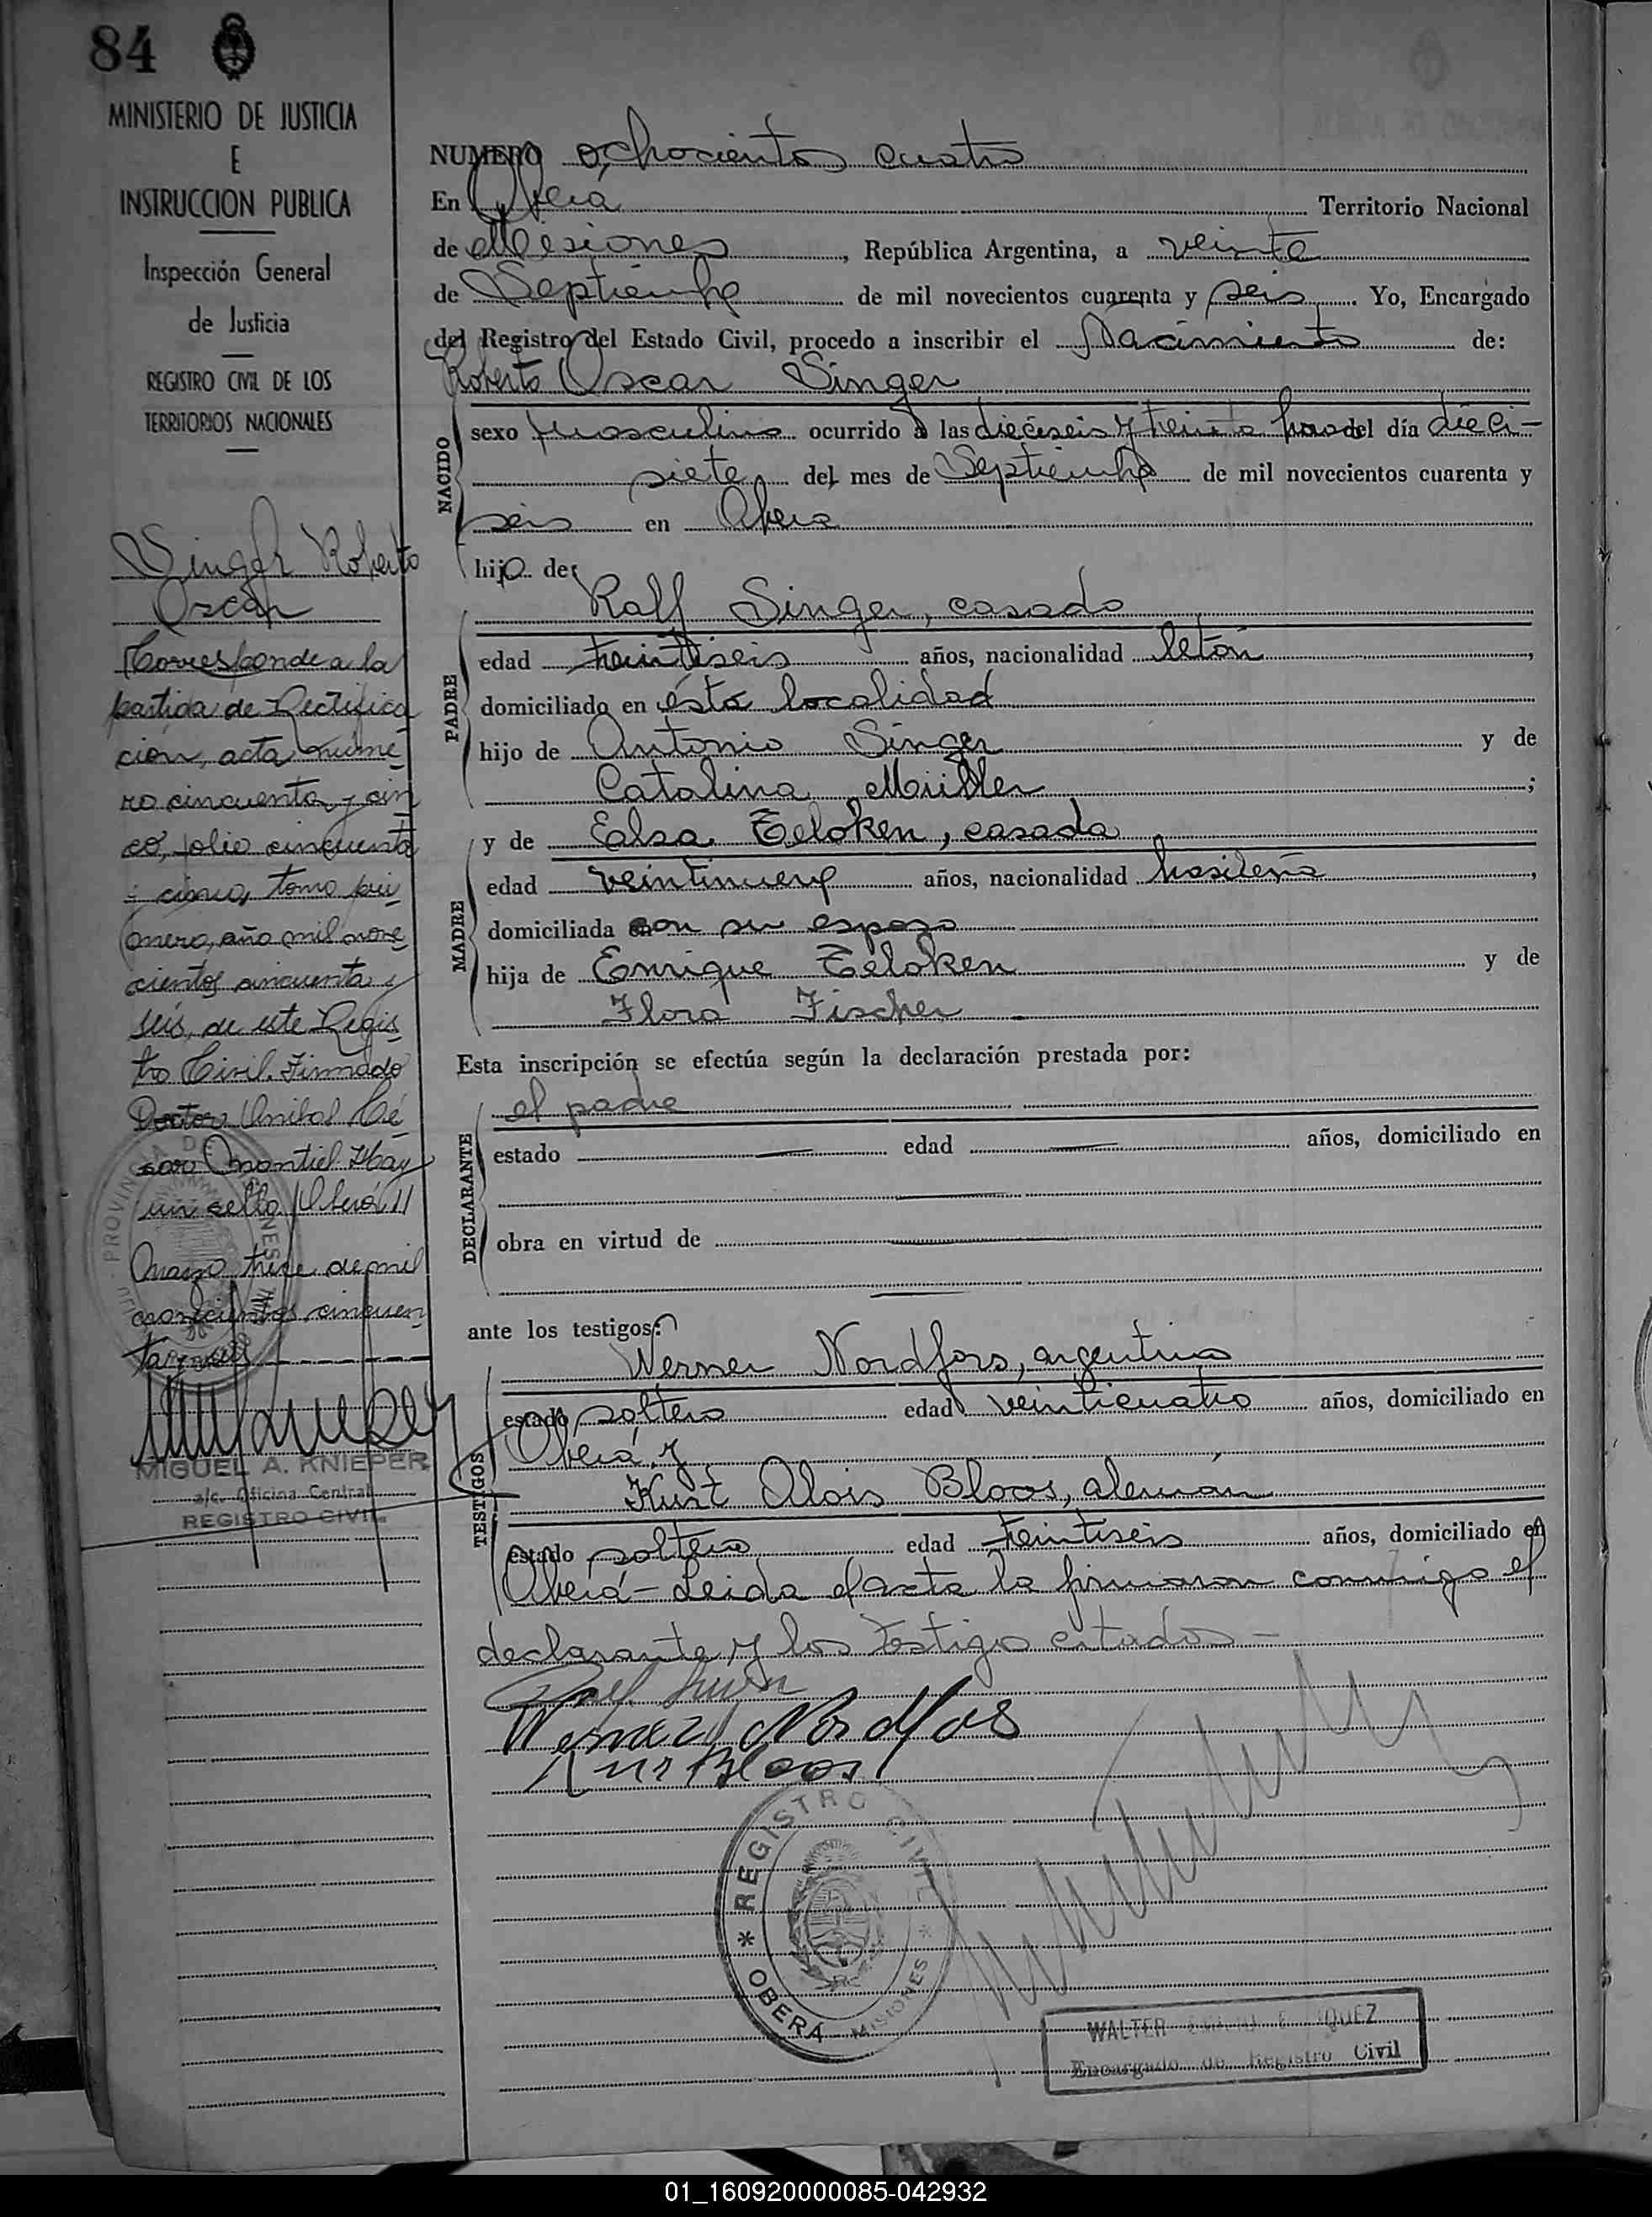 84
MINISTERIO DE JUSTICIA
E
INSTRUCCION PUBLICA
Inspección General
de Justicia
REGISTRO CIVIL DE LOS
TERRITORIOS NACIONALES
Singer Roberto
Oscar
Corresponde a la
partida de Rectifica
ción, acta núme-
ro cincuenta y cin
co, folio cincuenta
y cinco, tomo pri
mero, año mil nove
cientos cincuenta y
seis, de este Regis
tro Civil. Firmado
Doctor Anibal Cé-
sar Montiel. Hay
un sello. Oberá 11
Marzo trece de mil
novecientos cincuen
ta y seis
MIGUEL A. KNIEPER
a/c. Oficina Central
REGISTRO CIVIL
NUMERO ochocientos cuatro
En Oberá Territorio Nacional
de Misiones, República Argentina, a veinte
de Septiembre de mil novecientos cuarenta y seis. Yo, Encargado
del Registro del Estado Civil, procedo a inscribir el Nacimiento de:
Roberto Oscar Singer
NACIDO
sexo masculino ocurrido a las dieciseis y treinta horas del día dieci-
siete del mes de Septiembre de mil novecientos cuarenta y
seis en Oberá
hijo de:
PADRE
Ralf Singer, casado
edad treintiseis años, nacionalidad letón,
domiciliado en ésta localidad
hijo de Antonio Singer y de
Catalina Müller;
MADRE
y de Ealsa Teloken, casada
edad veintinueve años, nacionalidad brasileña,
domiciliada con su esposo
hija de Enrique Teloken y de
Flora Fischer
Esta inscripción se efectúa según la declaración prestada por:
DECLARANTE
el padre
estado edad años, domiciliado en
obra en virtud de
ante los testigos:
TESTIGOS
Werner Nordfors, argentino
estado soltero edad veinticuatro años, domiciliado en
Oberá y
Kurt Alois Bloos, alemán
estado soltero edad treintiseis años, domiciliado en
Oberá - Leida el acta la firmaron conmigo el
declarante y los testigos citados -
Ralf Singer
Werner Nordfors
Kurt Bloos
REGISTRO CIVIL
* OBERÁ - MISIONES *
WALTER
Encargado de Registro Civil
01_160920000085-042932